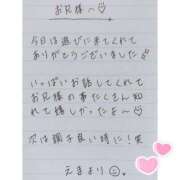 お兄様〜♡
今日は遊びに来てくれて
ありがとうございました
いっぱいお話してくれて
お兄様の事たくさん知
れて嬉しかったよ〜♡
次は調子良い時に!笑
えまより☺